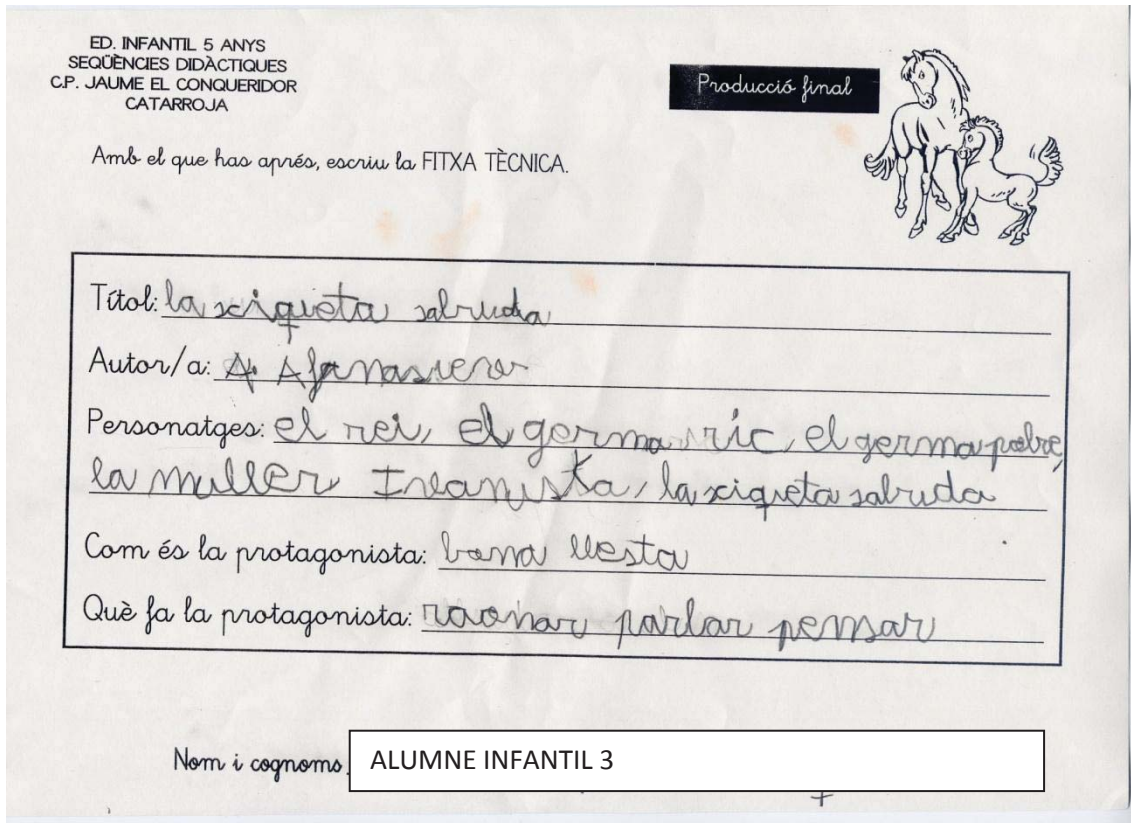 ED. INFANTIL 5 ANYS
SEQÜÈNCIES DIDÀCTIQUES
C.P. JAUME EL CONQUERIDOR
CATARROJA
Producció final
Amb el que has aprés, escriu la FITXA TÈCNICA.
Títol: la xiqueta sabuda
Autor/a: A. Afanasiev
Personatges: el rei, el germa ric, el germa pobre,
la muller Ivanista, la xiqueta sabuda
Com és la protagonista: bona llesta
Què fa la protagonista: raonar parlar pensar
Nom i cognoms
ALUMNE INFANTIL 3